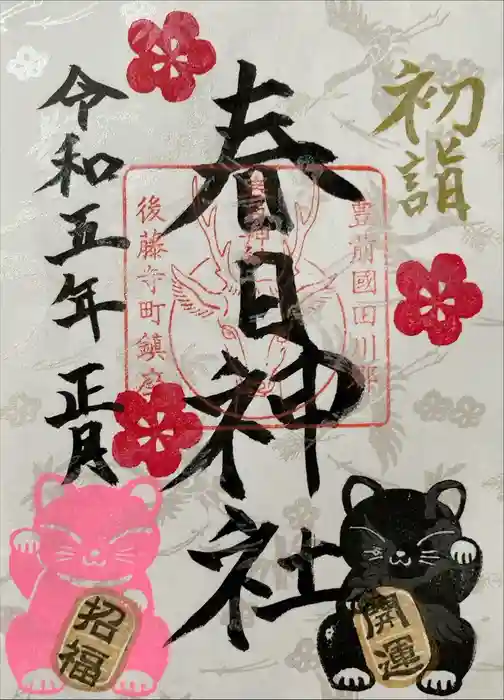 初詣
春日神社
令和五年 正月
豊前國田川郡
後藤寺町鎮座
招福
開運